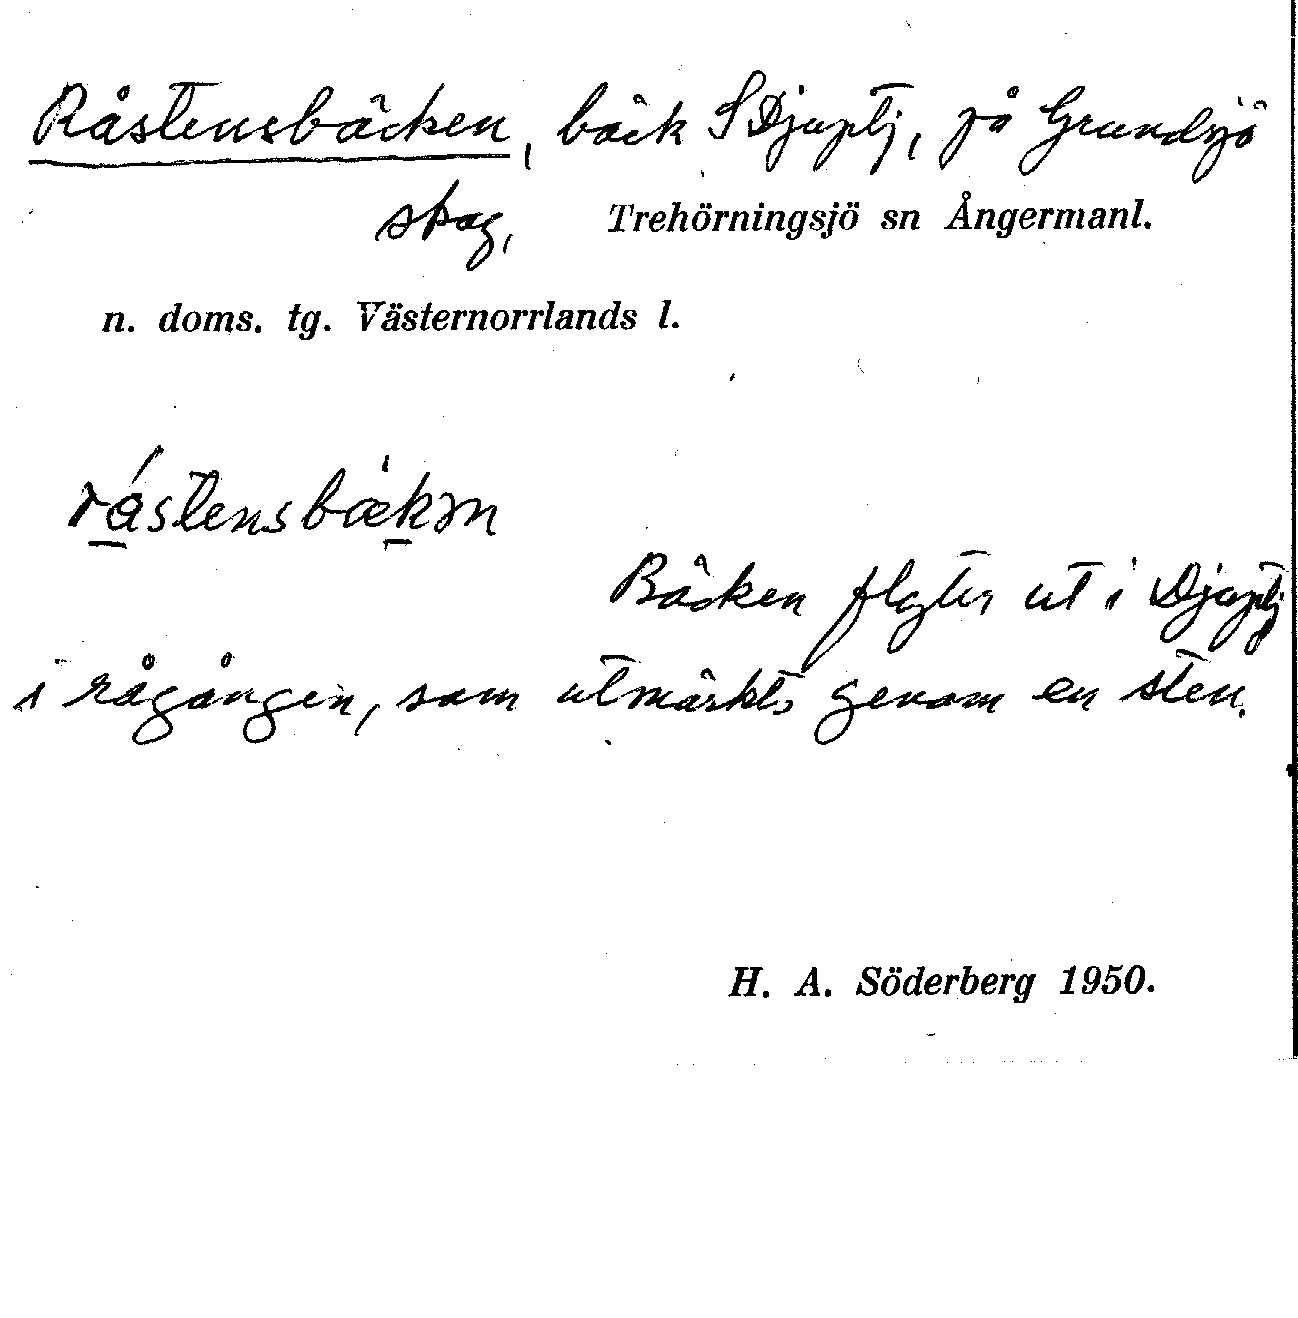 Råstensbäcken, bäck S Djuptj, på Grundsjö
skog, Trehörningsjö sn Ångermanl.
n. doms. tg. Västernorrlands l.
råstensbækən
Bäcken flyter ut i Djuptj
i rågången, som utmärkts genom en sten.
H. A. Söderberg 1950.